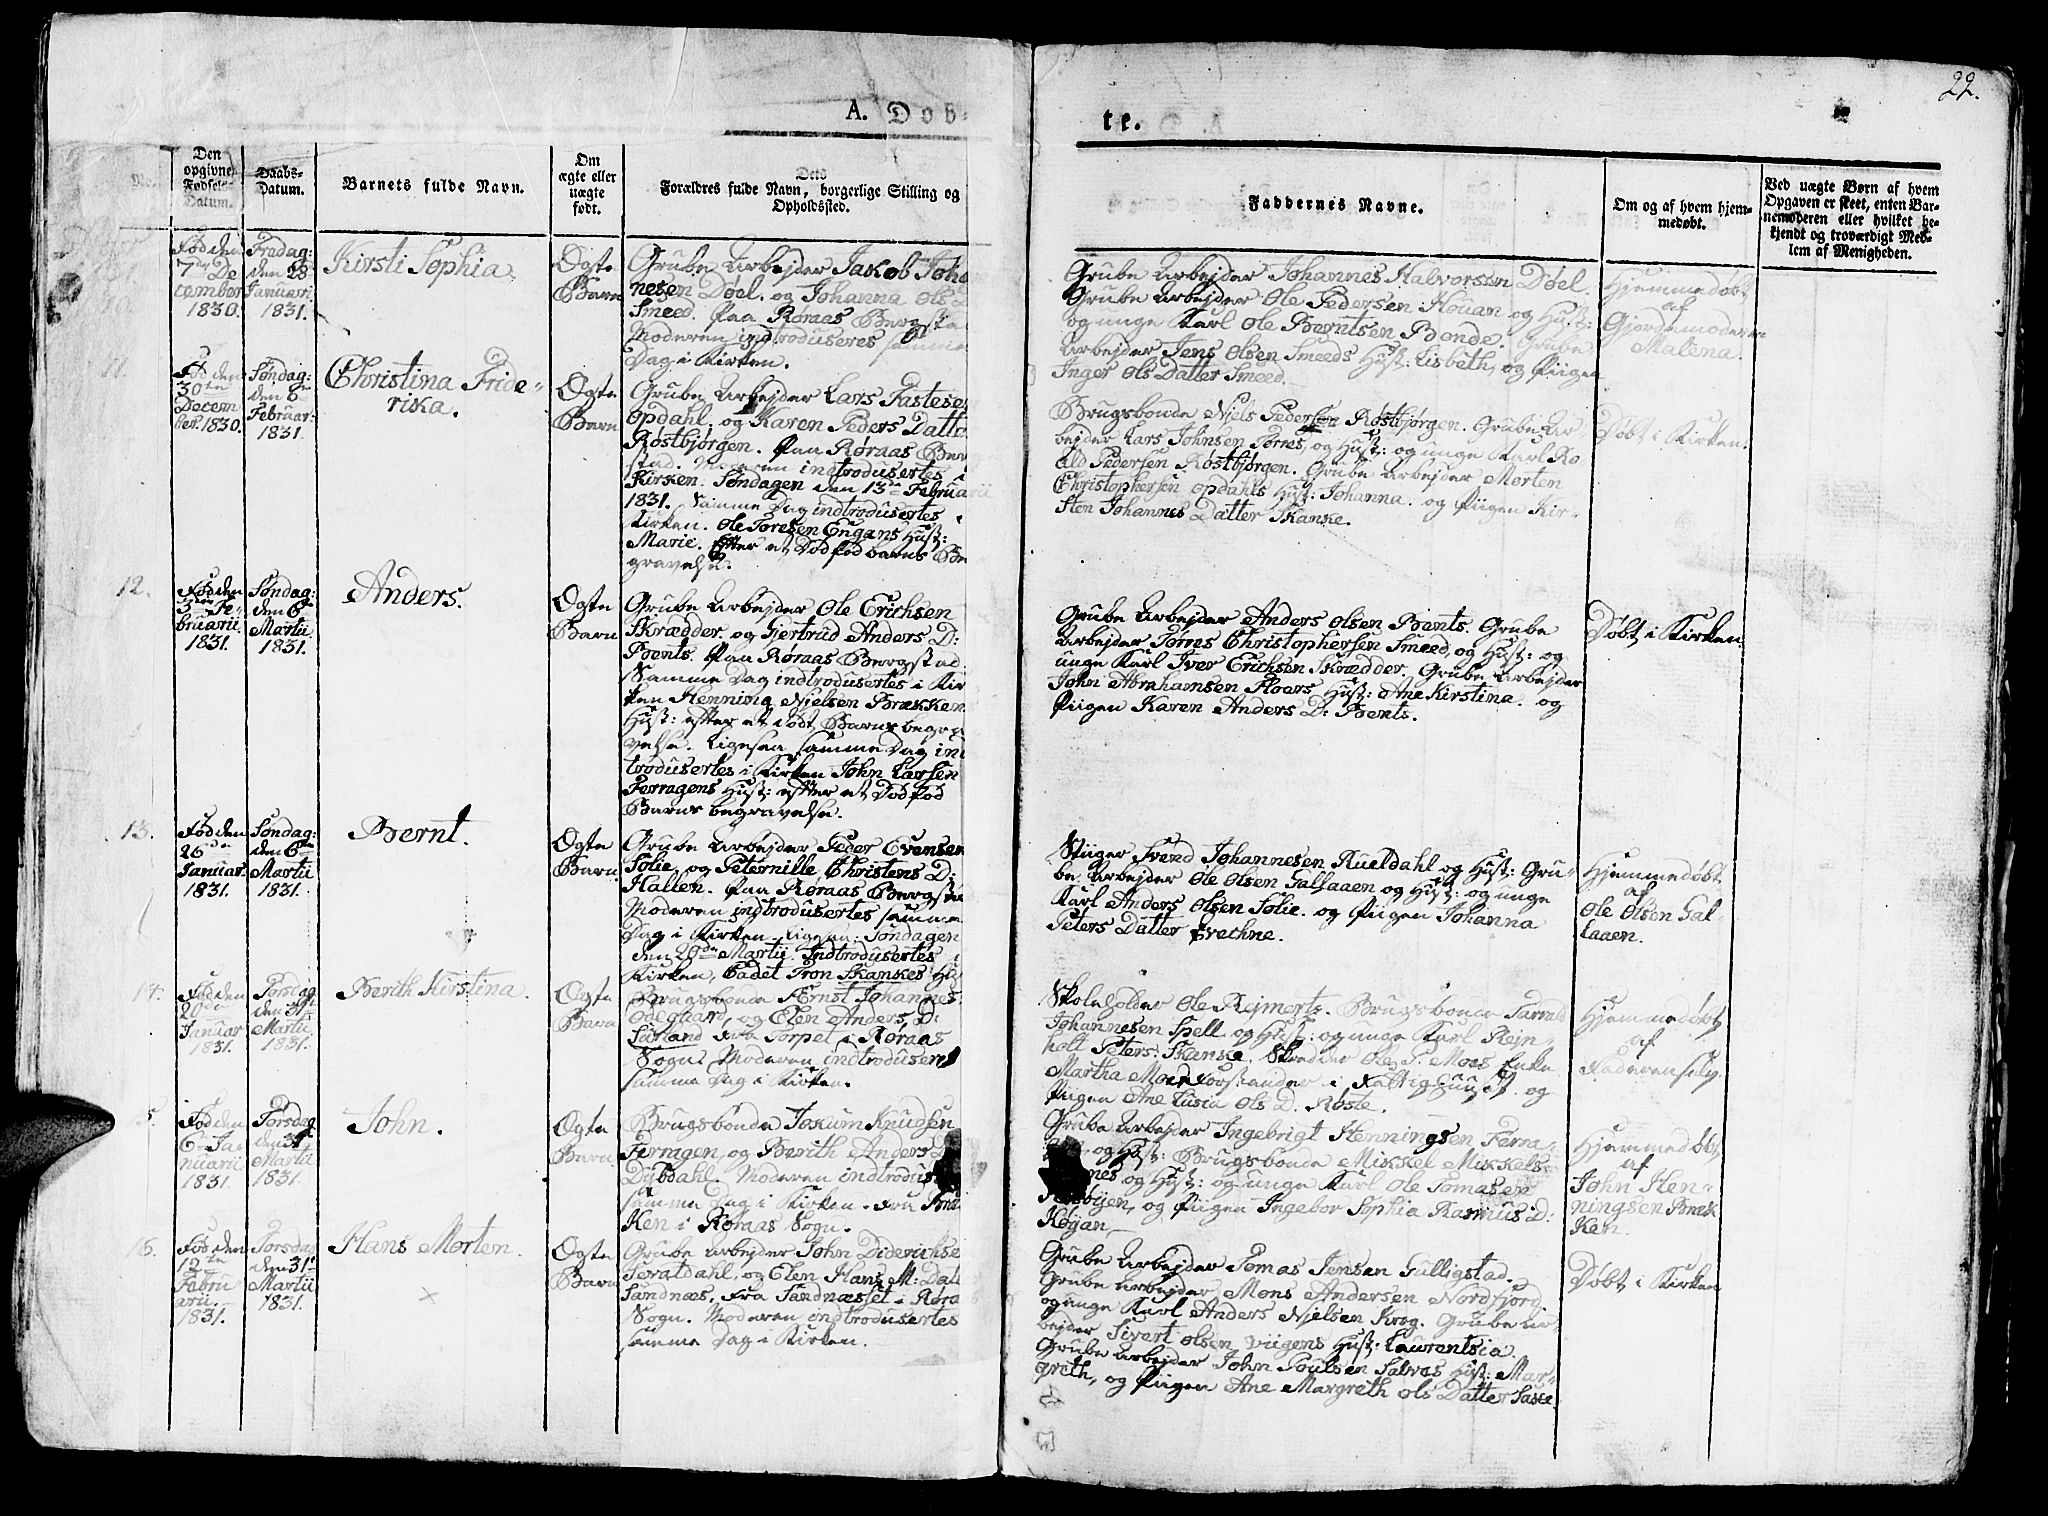 22.
A. Döb-
te.
No.
Den
opgivne
Fødsels-
Datum.
Daabs-
Datum.
Barnets fulde Navn.
Om
ægte eller
uægte
født.
Dets
Forældres fulde Navn, borgerlige Stilling og
Opholdssted.
Faddernes Navne.
Om og af hvem hjem-
medøbt.
Ved uægte Børn af hvem
Opgaven er skeet, enten Bar-
nemoderen eller hvilket be-
kjendt og troværdigt Med-
lem af Menigheden.
Fød den
7de De
cember
1830.
Fredag:
den 28
Januari
1831.
Kirsti Sophia.
Ægte
Barn
Grube Arbejder Jakob Joha
nesen Døel. og Johanna Ols D
Smeed. Paa Røraas Bergsta
Moderen indtroduseres samme
Dag i Kirken.
Grube Arbejder Johannes Halvorsen Døel.
Grube Arbejder Ole Pedersen Houan og Hust:
og unge Karl Ole Berntsen Bonde. Grube
Arbejder Jens Olsen Smeeds Hust: Lisbeth, og Piigen
Inger Ols Datter Smeed.
Hjemmedøbt
af
Gjordemoderen
Malena.
11.
Fød den
30te
Decem
ber. 1830.
Søndag:
den 6te
Februar:
1831.
Christina Fride-
rika.
Ægte
Barn
Grube Arbejder Lars Fastese
Opdahl. og Karen Peders Datte
Røstbjørgen. Paa Røraas Berg
stad. Moderen indtrodusertes i
Kirken. Søndagen den 13de Februarii
1831. Samme Dag indtrodusertes i
Kirken. Ole Toresen Engans Hust:
Marie. Efter et Dødfød barns Be
gravelse.
Brugsbonde Niels Pedersen Røstbjørgen. Grube Ar
bejder Lars Johnsen Tørres, og Hust: og unge Karl Ro
ald Pedersen Røstbjørgen. Grube Arbejder Morten
Christophersen Opdahls Hust: Johanna. og Piigen Kir-
sten Johannes Datter Skanke.
Døbt i Kirken.
12.
Fød den
3die Fe-
bruarii
1831.
Søndag:
den 6te
Martii
1831.
Anders.
Ægte
Barn
Grube Arbejder Ole Erichsen
Skrædder. og Gjertrud Anders D:
Bents. Paa Røraas Bergstad.
Samme Dag indtrodusertes i Kir
ken Henning Nielsen Brækken
Hust: efter et Født Barns begra
velse. Ligesaa samme Dag in
troduserters i Kirken John Larsen
Feragens Hust: efter et Dødfød
Barns begravelse.
Grube Arbejder Anders Olsen Bents. Grube
Arbejder Tørres Christophersen Smeed, og Hust: og
unge Karl Iver Erichsen Skrædder. Grube Arbejder
John Abrahamsen Floers Hust: Ane Kirstina. og
Piigen Karen Anders D: Bents.
Døbt i Kirken.
13.
Fød den
26de
Januar.
1831.
Søndag:
den 6te
Martii
1831.
Bernt.
Ægte
Barn
Grube Arbejder Peder Evensen
Solie, og Peternille Christens D:
Hallen. Paa Røraas Bergsta
Moderen indtrodusertes samme
Dag i Kirken. Ligesaa: Søndagen
den 20de Martii. Indtrodusertes i
Kirken, Cadet Tron Skankes Hus
Stiger Svend Johannesen Rueldahl og Hust: Gru-
be Arbejder Ole Olsen Gallaaen og Hust: og unge
Karl Anders Olsen Solie. og Piigen Johanna
Peters Datter Evechne.
Hjemmedøbt
af
Ole Olsen Gal-
laaen.
14.
Fød den
20de
Januar
1831.
Torsdag
den 31te
Martii
1831.
Berith Kirstina.
Ægte
Barn
Brugsbonde Ernst Johannes
Odegaard, og Elen Anders D:
Surland fra Torpel i Røraas
Sogn. Moderen indtroduseret
samme Dag i Kirken.
Skoleholder Ole Rejmert. Brugsbonde Tarrald
Johannesen Spell og Hust: og unge Karl Rejn-
holt Peters: Skanke. Skredder Ole P. Moes Enke
Martha Moe Forstander i Fattighuuset. og
Piigen Ane Lusia Ols D. Røste.
Hjemmedøbt
af
Faderen selv.
15.
Fød den
6te Ja-
nuarii
1831.
Torsdag
den 31te
Martii
1831.
John.
Ægte
Barn
Brugsbonde Jokum Knudsen
Ferragen, og Berith Anders D
Dybdahl. Moderen indtrodus
samme Dag i Kirken. fra Bræ
ken i Røraas Sogn.
Grube Arbejder Ingebrigt Henningsen Ferra-
og Hust: Brugsbonde Mikkel Mikkels-
og Hust: og unge Karl Ole Tomasen
og Piigen Ingebor Sophia Rasmus D:
Køjan.
Hjemmedøbt
af
John Hen-
ningsen Bræk
ken.
16.
Fød den
12te
Febru
arii.
1831.
Torsdag
den 31te
Martii
1831.
Hans Morten.
Ægte
Barn
Grube Arbejder John Diderichse
Sevaldahl, og Elen Hans M: Date
Sandnæs, fra Sandnæsset i Røra
Sogn. Moderen indtrodusertes
samme Dag i Kirken.
Grube Arbejder Tomas Jensen Gulligstad.
Grube Arbejder Mons Andersen Nordfjord.
og unge Karl Anders Nielsen Krog. Grube Ar-
bejder Sivert Olsen Viigens Hust: Laurentsia.
Grube Arbejder John Poulsen Salvas Hust: Mar-
greth, og Piigen Ane Margreth Ols Datter Sasse.
Døbt i Kirken